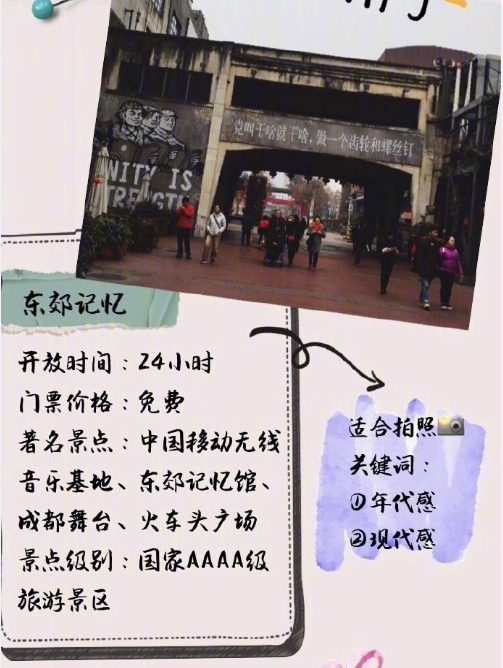 党叫干啥就干啥，做一个齿轮和螺丝钉
UNITY IS
STRENGTH
东郊记忆
开放时间：24小时
门票价格：免费
著名景点：中国移动无线
音乐基地、东郊记忆馆、
成都舞台、火车头广场
景点级别：国家AAAA级
旅游景区
适合拍照📷
关键词：
①年代感
②现代感